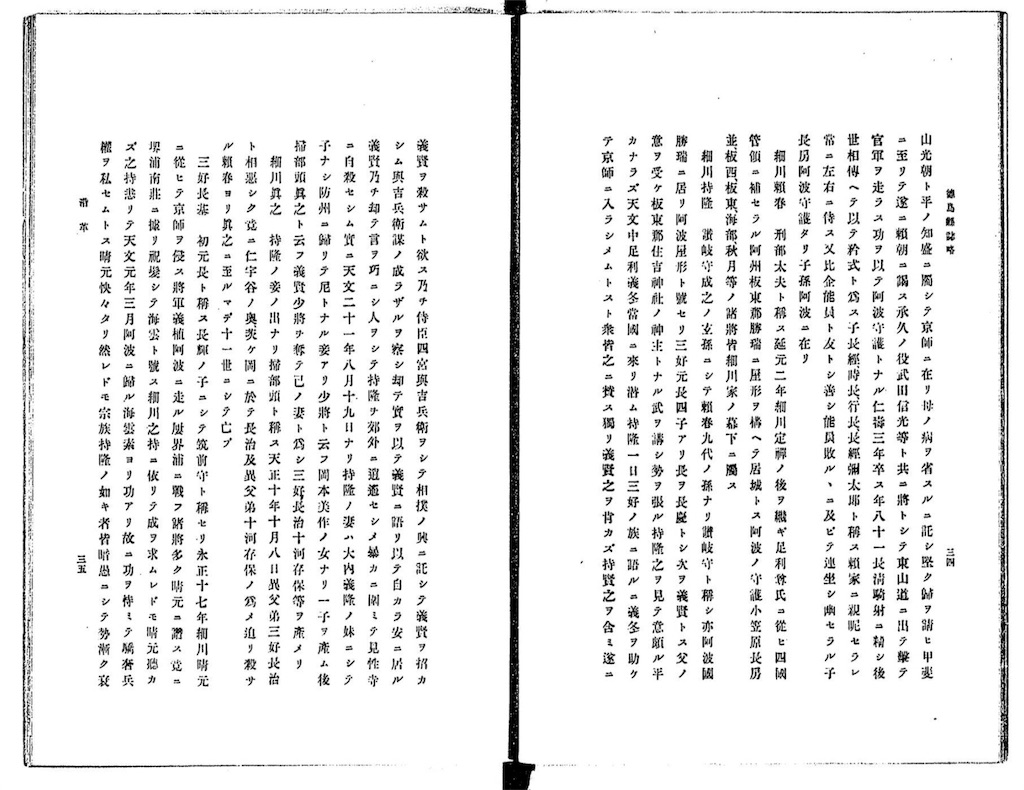 徳島縣誌略
三四
山光朝ト平ノ知盛ニ屬シテ京師ニ在リ母ノ病ヲ省スルニ託シ堅ク歸ヲ請ヒ甲斐
ニ至リテ遂ニ頼朝ニ謁ス承久ノ役武田信光等ト共ニ將トシテ東山道ニ出テ擊テ
官軍ヲ走ラス功ヲ以テ阿波守護トナル仁壽三年卒ス年八十一長淸騎射ニ精シ後
世相傳ヘテ以テ矜式ト爲ス子長經時長行長長經彌太郎ト稱ス賴家ニ親昵セラレ
常ニ左右ニ侍ス又比企能員ト友トシ善シ能員敗ルヽニ及ビテ連坐シ幽セラル子
長房阿波守護タリ子孫阿波ニ在リ
細川賴春 刑部太夫ト稱ス延元二年細川定禪ノ後ヲ繼ギ足利尊氏ニ從ヒ四國
管領ニ補セラル阿州板東郡勝瑞ニ屋形ヲ構ヘテ居城トス阿波ノ守護小笠原長房
並板西板東海部秋月等ノ諸將皆細川家ノ幕下ニ屬ス
細川持隆 讃岐守成之ノ玄孫ニシテ賴春九代ノ孫ナリ讃岐守ト稱シ亦阿波國
勝瑞ニ居リ阿波屋形ト號セリ三好元長四子アリ長ヲ長慶トシ次ヲ義賢トス父ノ
意ヲ受ケ板東郡住吉神社ノ神主トナル武ヲ講シ勢ヲ張ル持隆之ヲ見テ意頗ル平
カナラズ天文中足利義冬當國ニ來リ潜ム持隆一日三好ノ族ニ語ルニ義冬ヲ助ケ
テ京師ニ入ラシメムトスト衆皆之ニ賛ス獨リ義賢之ヲ肯カズ持賢之ヲ含ミ遂ニ
義賢ヲ殺サムト欲ス乃チ侍臣四宮與吉兵衛ヲシテ相撲ノ興ニ託シテ義賢ヲ招カ
シム與吉兵衛謀ノ成ラザルヲ察シ却テ實ヲ以テ義賢ニ語リ以テ自カラ安ニ居ル
義賢乃チ却テ言ヲ巧ニシ人ヲシテ持隆ヲ郊外ニ逍遙セシメ暴カニ圍ミテ見性寺
ニ自殺セシム實ニ天文二十一年八月十九日ナリ持隆ノ妻ハ大内義隆ノ妹ニシテ
子ナシ防州ニ歸リテ尼トナル妾アリ少將ト云フ岡本美作ノ女ナリ一子ヲ產ム後
掃部頭眞之ト云フ義賢少將ヲ奪テ己ノ妻ト爲シ三好長治十河存保等ヲ產メリ
細川眞之 持隆ノ妾ノ出ナリ掃部頭ト稱ス天正十年十月八日異父弟三好長治
ト相惡シク竟ニ仁宇谷ノ奥茨ケ岡ニ於テ長治及異父弟十河存保ノ爲メ迫リ殺サ
ル賴春ヨリ眞之ニ至ルマデ十一世ニシテ亡ブ
三好長基 初元長ト稱ス長輝ノ子ニシテ筑前守ト稱セリ永正十七年細川晴元
ニ從ヒテ京師ヲ侵ス將軍義植阿波ニ走ル屡界浦ニ戰フ諸將多ク晴元ニ讃ス竟ニ
堺浦南莊ニ據リ祝髮シテ海雲ト號ス細川之持ニ依リテ成ヲ求ムレドモ晴元聽カ
ズ之持悲リテ天文元年三月阿波ニ歸ル海雲素ヨリ功アリ故ニ功ヲ恃ミテ驕奢兵
權ヲ私セムトス晴元怏々タリ然レドモ宗族持隆ノ如キ者皆暗愚ニシテ勢漸ク衰
沿革
三五